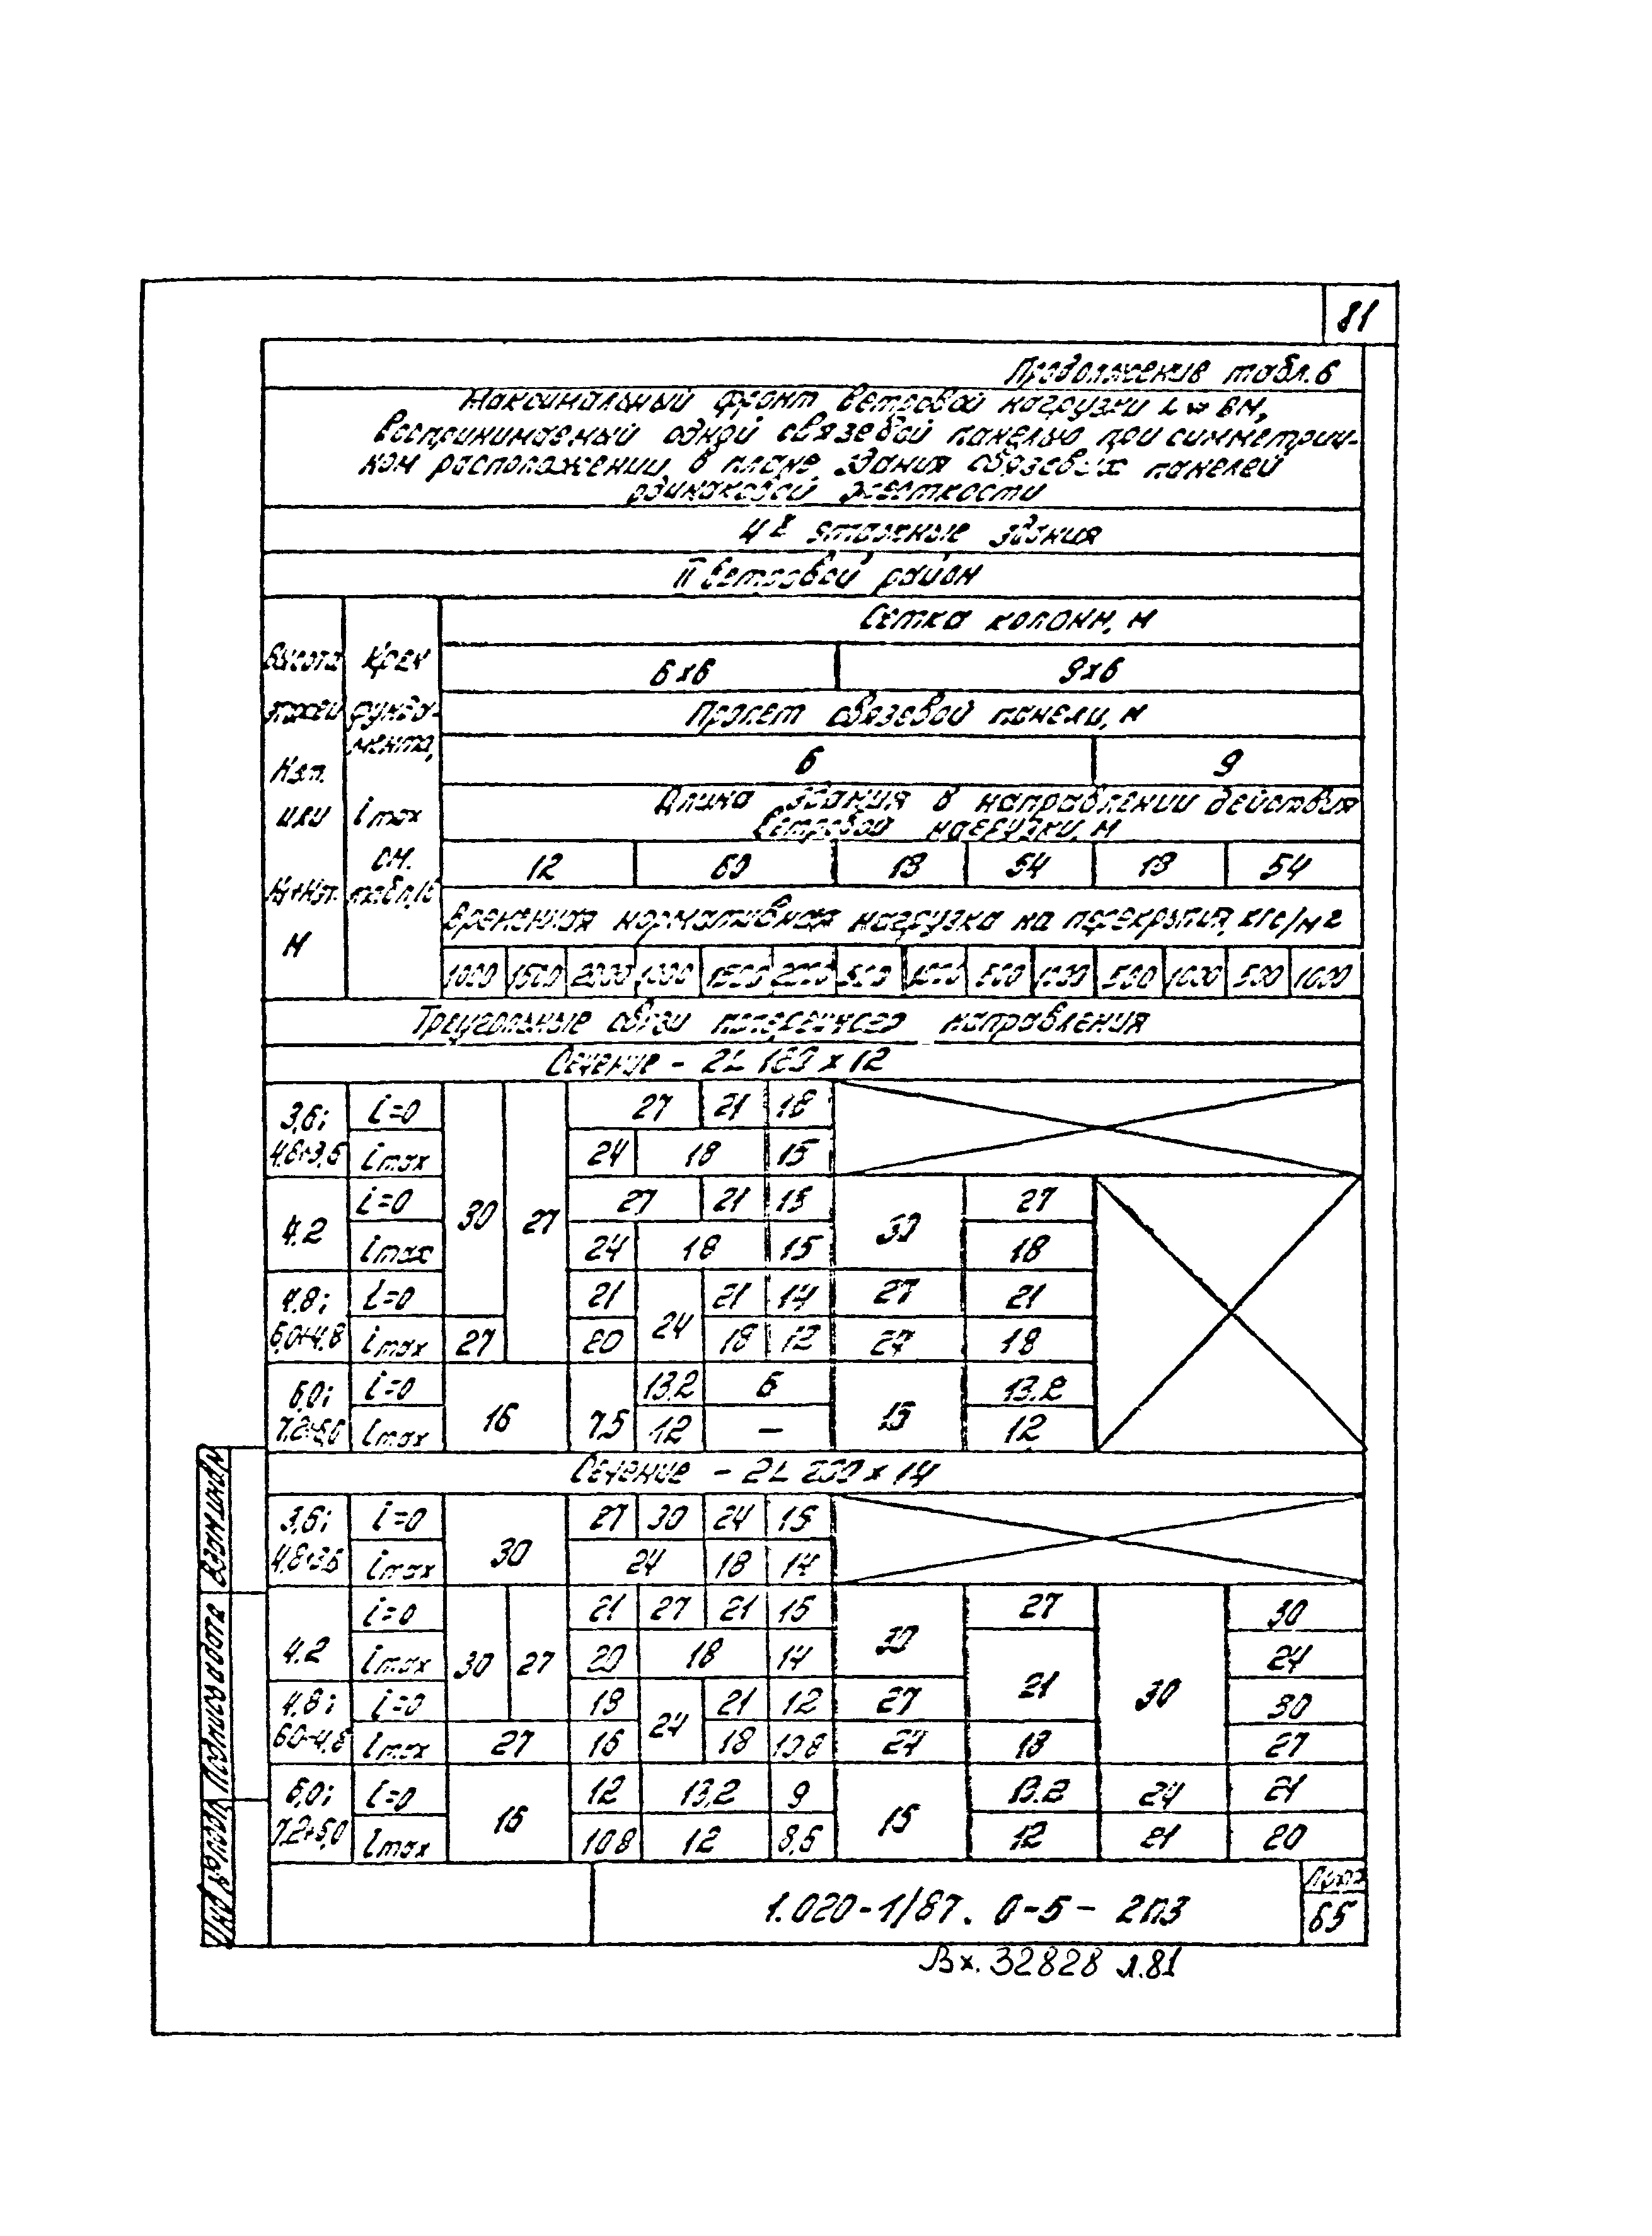 81
Продолжение табл. 6
Максимальный фронт ветровой нагрузки Lw в м,
воспринимаемый одной связевой панелью при симметрич-
ном расположении в плане здания связевых панелей
одинаковой жесткости
4х этажные здания
II ветровой район
Высота этажей Нэт. или Н1+Нэт. м
Крен фундамента, imax см. табл. 16
Сетка колонн, м
6х6 9х6
Пролет связевой панели, м
6 9
Длина здания в направлении действия
ветровой нагрузки, м
12 60 18 54 18 54
Временная нормативная нагрузка на перекрытия, кгс/м2
1000 1500 2000 1000 1500 2000 500 1000 500 1000 500 1000 500 1000
Треугольные связи поперечного направления
Сечение - 2L 160 х 12
3,6; i=0 30 27 27 21 18
4,8+3,6 imax 24 18 15
4.2 i=0 27 21 15 30 27
imax 24 18 15 18
4,8; i=0 21 24 21 14 27 21
6,0+4,8 imax 27 20 18 12 24 18
6,0; i=0 16 7,5 13,2 6 15 13.2
7.2+6,0 imax 12 — 12
Сечение - 2L 200 х 14
3,6; i=0 30 27 30 24 15
4,8+3,6 imax 24 18 14
4.2 i=0 30 27 21 27 21 15 30 27 30 30
imax 20 18 14 21 24
4,8; i=0 18 24 21 12 27 30
6.0+4,8 imax 27 16 18 10,8 24 18 27
6,0; i=0 16 12 13,2 9 15 13.2 24 21
7.2+6,0 imax 10,8 12 8,6 12 21 20
Взам инв №
Подпись и дата
Инв № подл
1.020-1/87. 0-5 - 2ПЗ
Лист
65
Вх. 32828 л.81